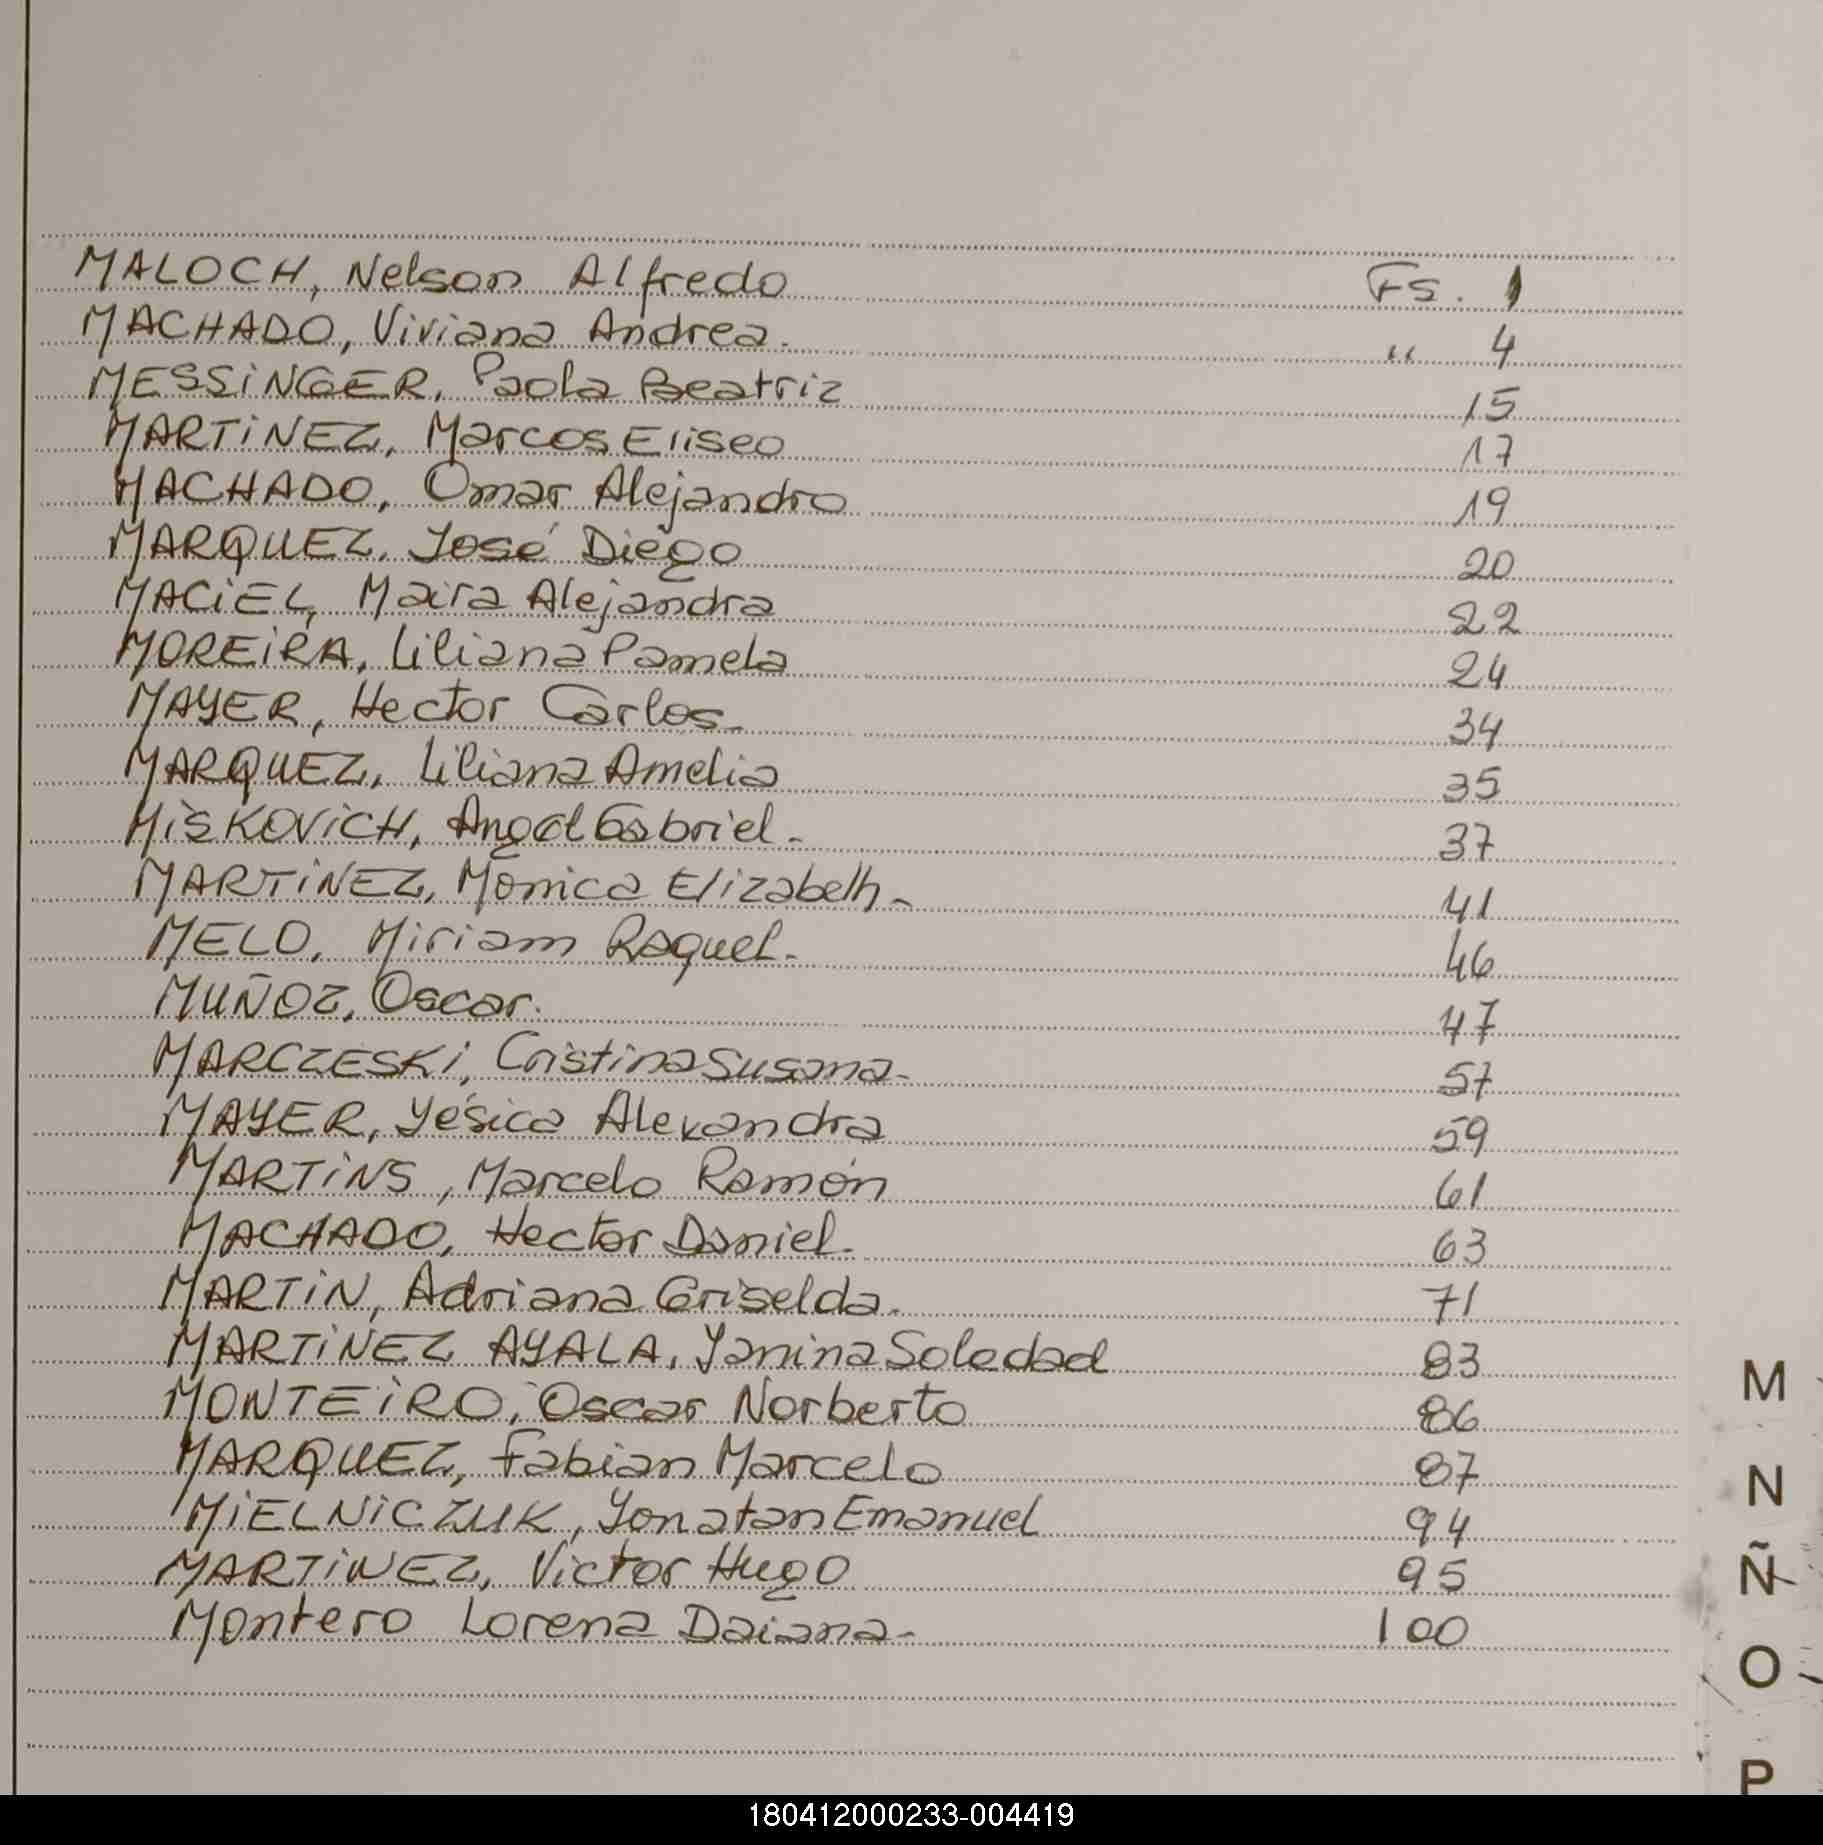 MALOCH, Nelson Alfredo Fs. 1
MACHADO, Viviana Andrea. " 4
MESSiNGER, Paola Beatriz 15
MARTiNEZ, Marcos Eliseo 17
MACHADO, Omar Alejandro 19
MARQUEZ, José Diego 20
MACiEL, Maira Alejandra 22
MOREiRA, Liliana Pamela 24
MAYER, Hector Carlos- 34
MARQUEZ, Liliana Amelia 35
MiSKOViCH, Angel Gabriel- 37
MARTiNEZ, Monica Elizabeth- 41
MELO, Miriam Raquel- 46
MUÑOZ, Oscar. 47
MARCZESKi, Cristina Susana- 57
MAYER, Yésica Alexandra 59
MARTiNS, Marcelo Ramón 61
MACHADO, Hector Daniel- 63
MARTiN, Adriana Griselda. 71
MARTiNEZ AYALA, Yanina Soledad 83
MONTEiRO, Oscar Norberto 86
MARQUEZ, Fabian Marcelo 87
MiELNiCZUK, Yonatan Emanuel 94
MARTiNEZ, Victor Hugo 95
Montero Lorena Daiana- 100
M
N
Ñ
O
P
180412000233-004419